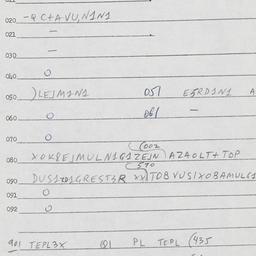 020 -QC+AVU,N1N1
021 —
030 —
040 O
050 )LEJM1N1 051 E5RD1N1 A
060 O 061 —
070 O
(002
080 XOKPEJMULN1G1ZEJN)AZAOLT+TOP
(570
090 XX)TOBVUSIXOBAMULG1
091 O
092 O
901 TEPL3X Q1 PL TEPL (435